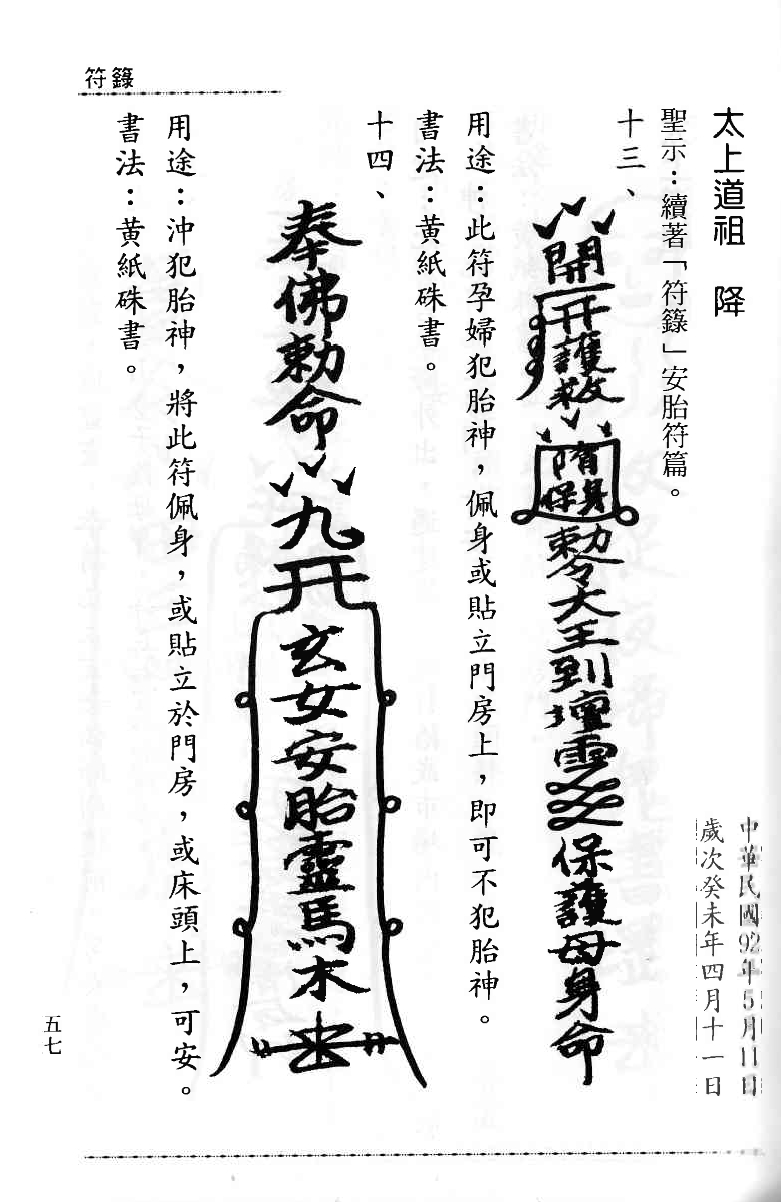 符籙
太上道祖　降
中華民國92年5月11日
歲次癸未年四月十一日
聖示：續著「符籙」安胎符篇。
十三、
開
護救
保身
勅令大王到壇
保護母身命
用途：此符孕婦犯胎神，佩身或貼立門房上，即可不犯胎神。
書法：黃紙硃書。
十四、
奉佛勅命
九
玄女安胎靈馬木
用途：沖犯胎神，將此符佩身，或貼立於門房，或床頭上，可安。
書法：黃紙硃書。
五七